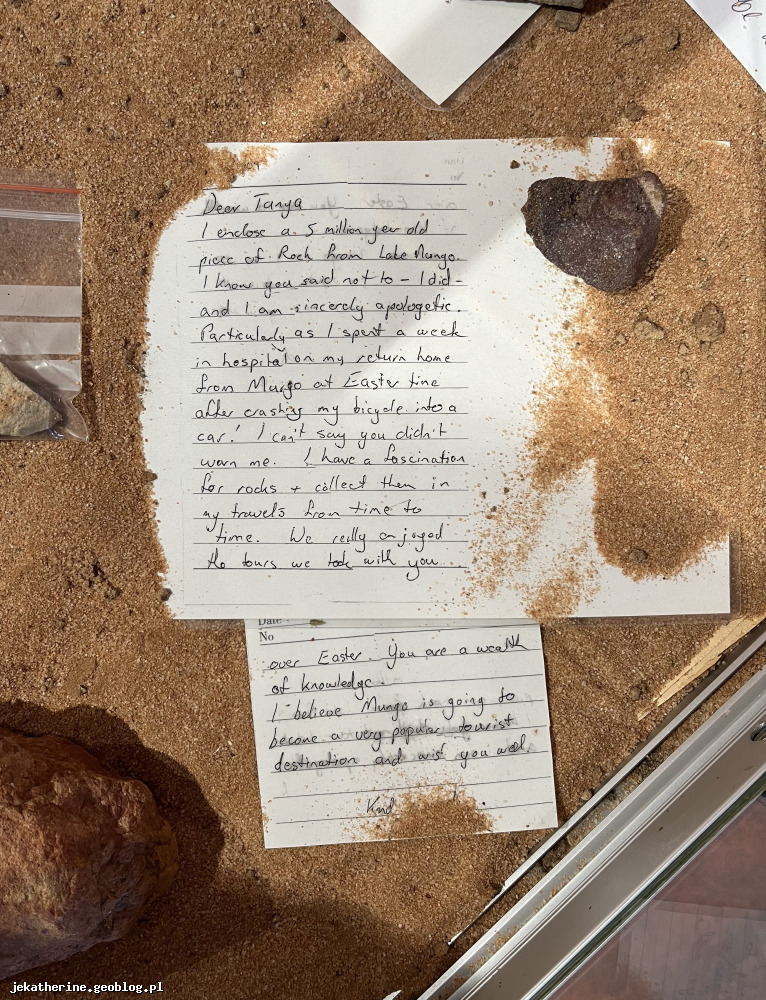 Dear Tanya
I enclose a 5 million year old
piece of Rock from Lake Mungo.
I know you said not to - I did -
and I am sincerely apologetic.
Particularly as I spent a week
in hospital on my return home
from Mungo at Easter time
after crashing my bicycle into a
car! I can't say you didn't
warn me. I have a fascination
for rocks + collect them in
my travels from time to
time. We really enjoyed
the tours we took with you...
Date
No
over Easter. You are a wealth
of knowledge.
I believe Mungo is going to
become a very popular tourist
destination and wish you well.
Kind
jekatherine.geoblog.pl